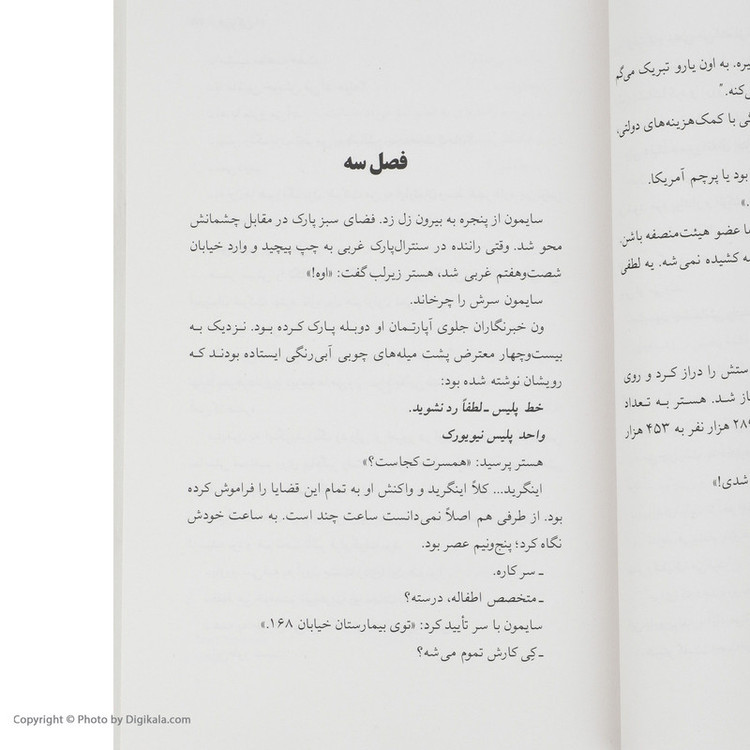 یره. به اون یارو تبریک می‌گم
ی‌کنه."
گی با کمک‌هزینه‌های دولتی،
بود یا پرچم آمریکا.
.»
ا عضو هیئت‌منصفه باشن.
ه کشیده نمی‌شه. یه لطفی
ستش را دراز کرد و روی
از شد. هستر به تعداد
هزار نفر به ۴۵۳ هزار
شدی!»
فصل سه
سایمون از پنجره به بیرون زل زد. فضای سبز پارک در مقابل چشمانش
محو شد. وقتی راننده در سنترال‌پارک غربی به چپ پیچید و وارد خیابان
شصت‌وهفتم غربی شد، هستر زیرلب گفت: «اوه!»
سایمون سرش را چرخاند.
ون خبرنگاران جلوی آپارتمان او دوبله پارک کرده بود. نزدیک به
بیست‌وچهار معترض پشت میله‌های چوبی آبی‌رنگی ایستاده بودند که
رویشان نوشته شده بود:
خط پلیس ـ لطفاً رد نشوید.
واحد پلیس نیویورک
هستر پرسید: «همسرت کجاست؟»
اینگرید... کلاً اینگرید و واکنش او به تمام این قضایا را فراموش کرده
بود. از طرفی هم اصلاً نمی‌دانست ساعت چند است. به ساعت خودش
نگاه کرد؛ پنج‌ونیم عصر بود.
ـ سر کاره.
ـ متخصص اطفاله، درسته؟
سایمون با سر تأیید کرد: «توی بیمارستان خیابان ۱۶۸.»
ـ کِی کارش تموم می‌شه؟
Copyright © Photo by Digikala.com